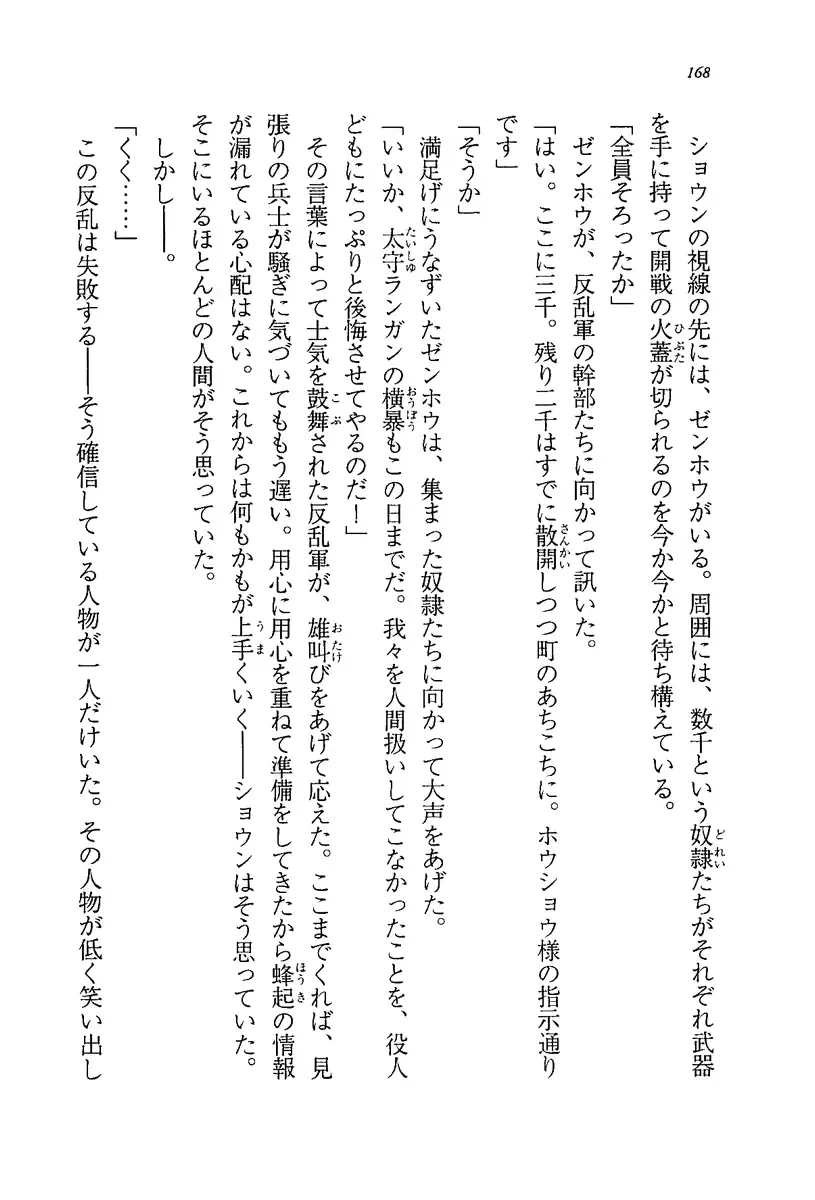 168
ショウンの視線の先には、ゼンホウがいる。周囲には、数千という奴隷たちがそれぞれ武器
を手に持って開戦の火蓋が切られるのを今か今かと待ち構えている。
「全員そろったか」
ゼンホウが、反乱軍の幹部たちに向かって訊いた。
「はい。ここに三千。残り二千はすでに散開しつつ町のあちこちに。ホウショウ様の指示通り
です」
「そうか」
満足げにうなずいたゼンホウは、集まった奴隷たちに向かって大声をあげた。
「いいか、太守ランガンの横暴もこの日までだ。我々を人間扱いしてこなかったことを、役人
どもにたっぷりと後悔させてやるのだ！」
その言葉によって士気を鼓舞された反乱軍が、雄叫びをあげて応えた。ここまでくれば、見
張りの兵士が騒ぎに気づいてももう遅い。用心に用心を重ねて準備をしてきたから蜂起の情報
が漏れている心配はない。これからは何もかもが上手くいく――ショウンはそう思っていた。
そこにいるほとんどの人間がそう思っていた。
しかし――。
「くく……」
この反乱は失敗する――そう確信している人物が一人だけいた。その人物が低く笑い出し